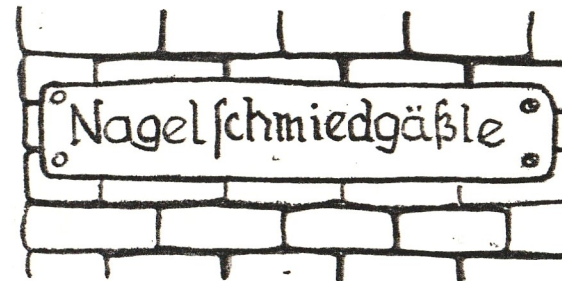 Nagelſchmiedgäßle